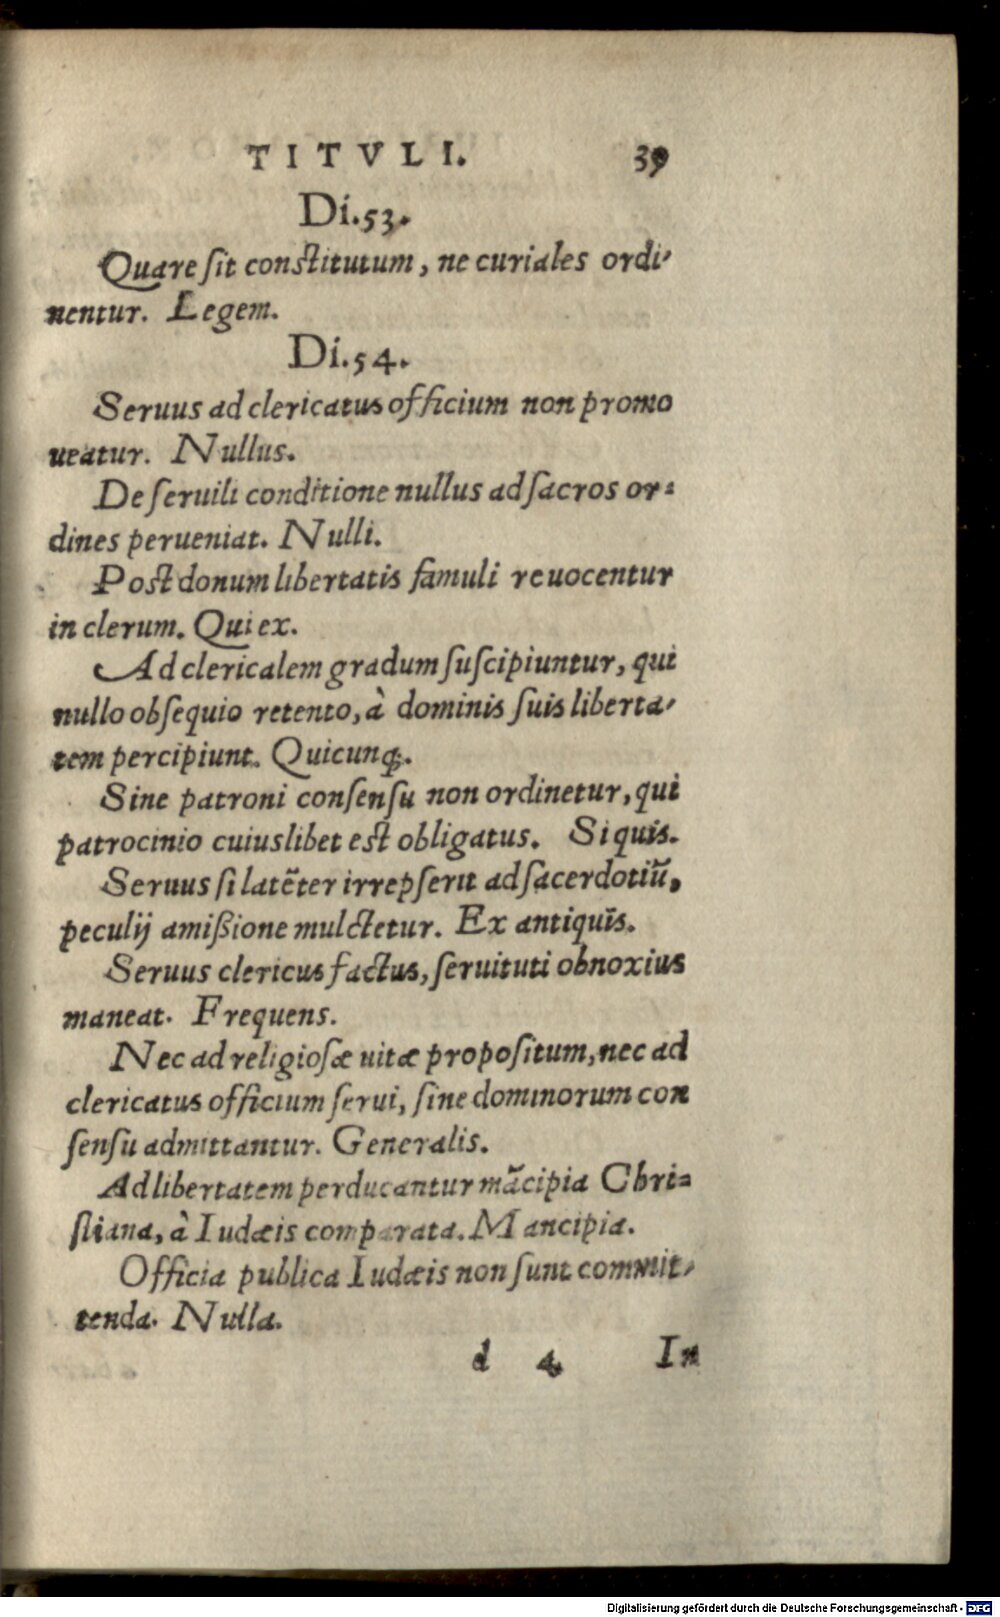 TITVLI. 39
Di.53.
Quare ſit conſtitutum, ne curiales ordi-
nentur. Legem.
Di.54.
Seruus ad clericatus officium non promo
ueatur. Nullus.
De ſeruili conditione nullus ad ſacros or-
dines perueniat. Nulli.
Poſt donum libertatis famuli reuocentur
in clerum. Qui ex.
Ad clericalem gradum ſuſcipiuntur, qui
nullo obſequio retento, à dominis ſuis liberta-
tem percipiunt. Quicunq;.
Sine patroni conſenſu non ordinetur, qui
patrocinio cuiuslibet eſt obligatus. Si quis.
Seruus ſi latẽter irrepſerit ad ſacerdotiũ,
peculij amißione mulctetur. Ex antiquis.
Seruus clericus factus, ſeruituti obnoxius
maneat. Frequens.
Nec ad religioſæ uitæ propoſitum, nec ad
clericatus officium ſerui, ſine dominorum con
ſenſu admittantur. Generalis.
Ad libertatem perducantur mãcipia Chri-
ſtiana, à Iudæis comparata. Mancipia.
Officia publica Iudæis non ſunt commit-
tenda. Nulla.
d 4 In
Digitalisierung gefördert durch die Deutsche Forschungsgemeinschaft - DFG